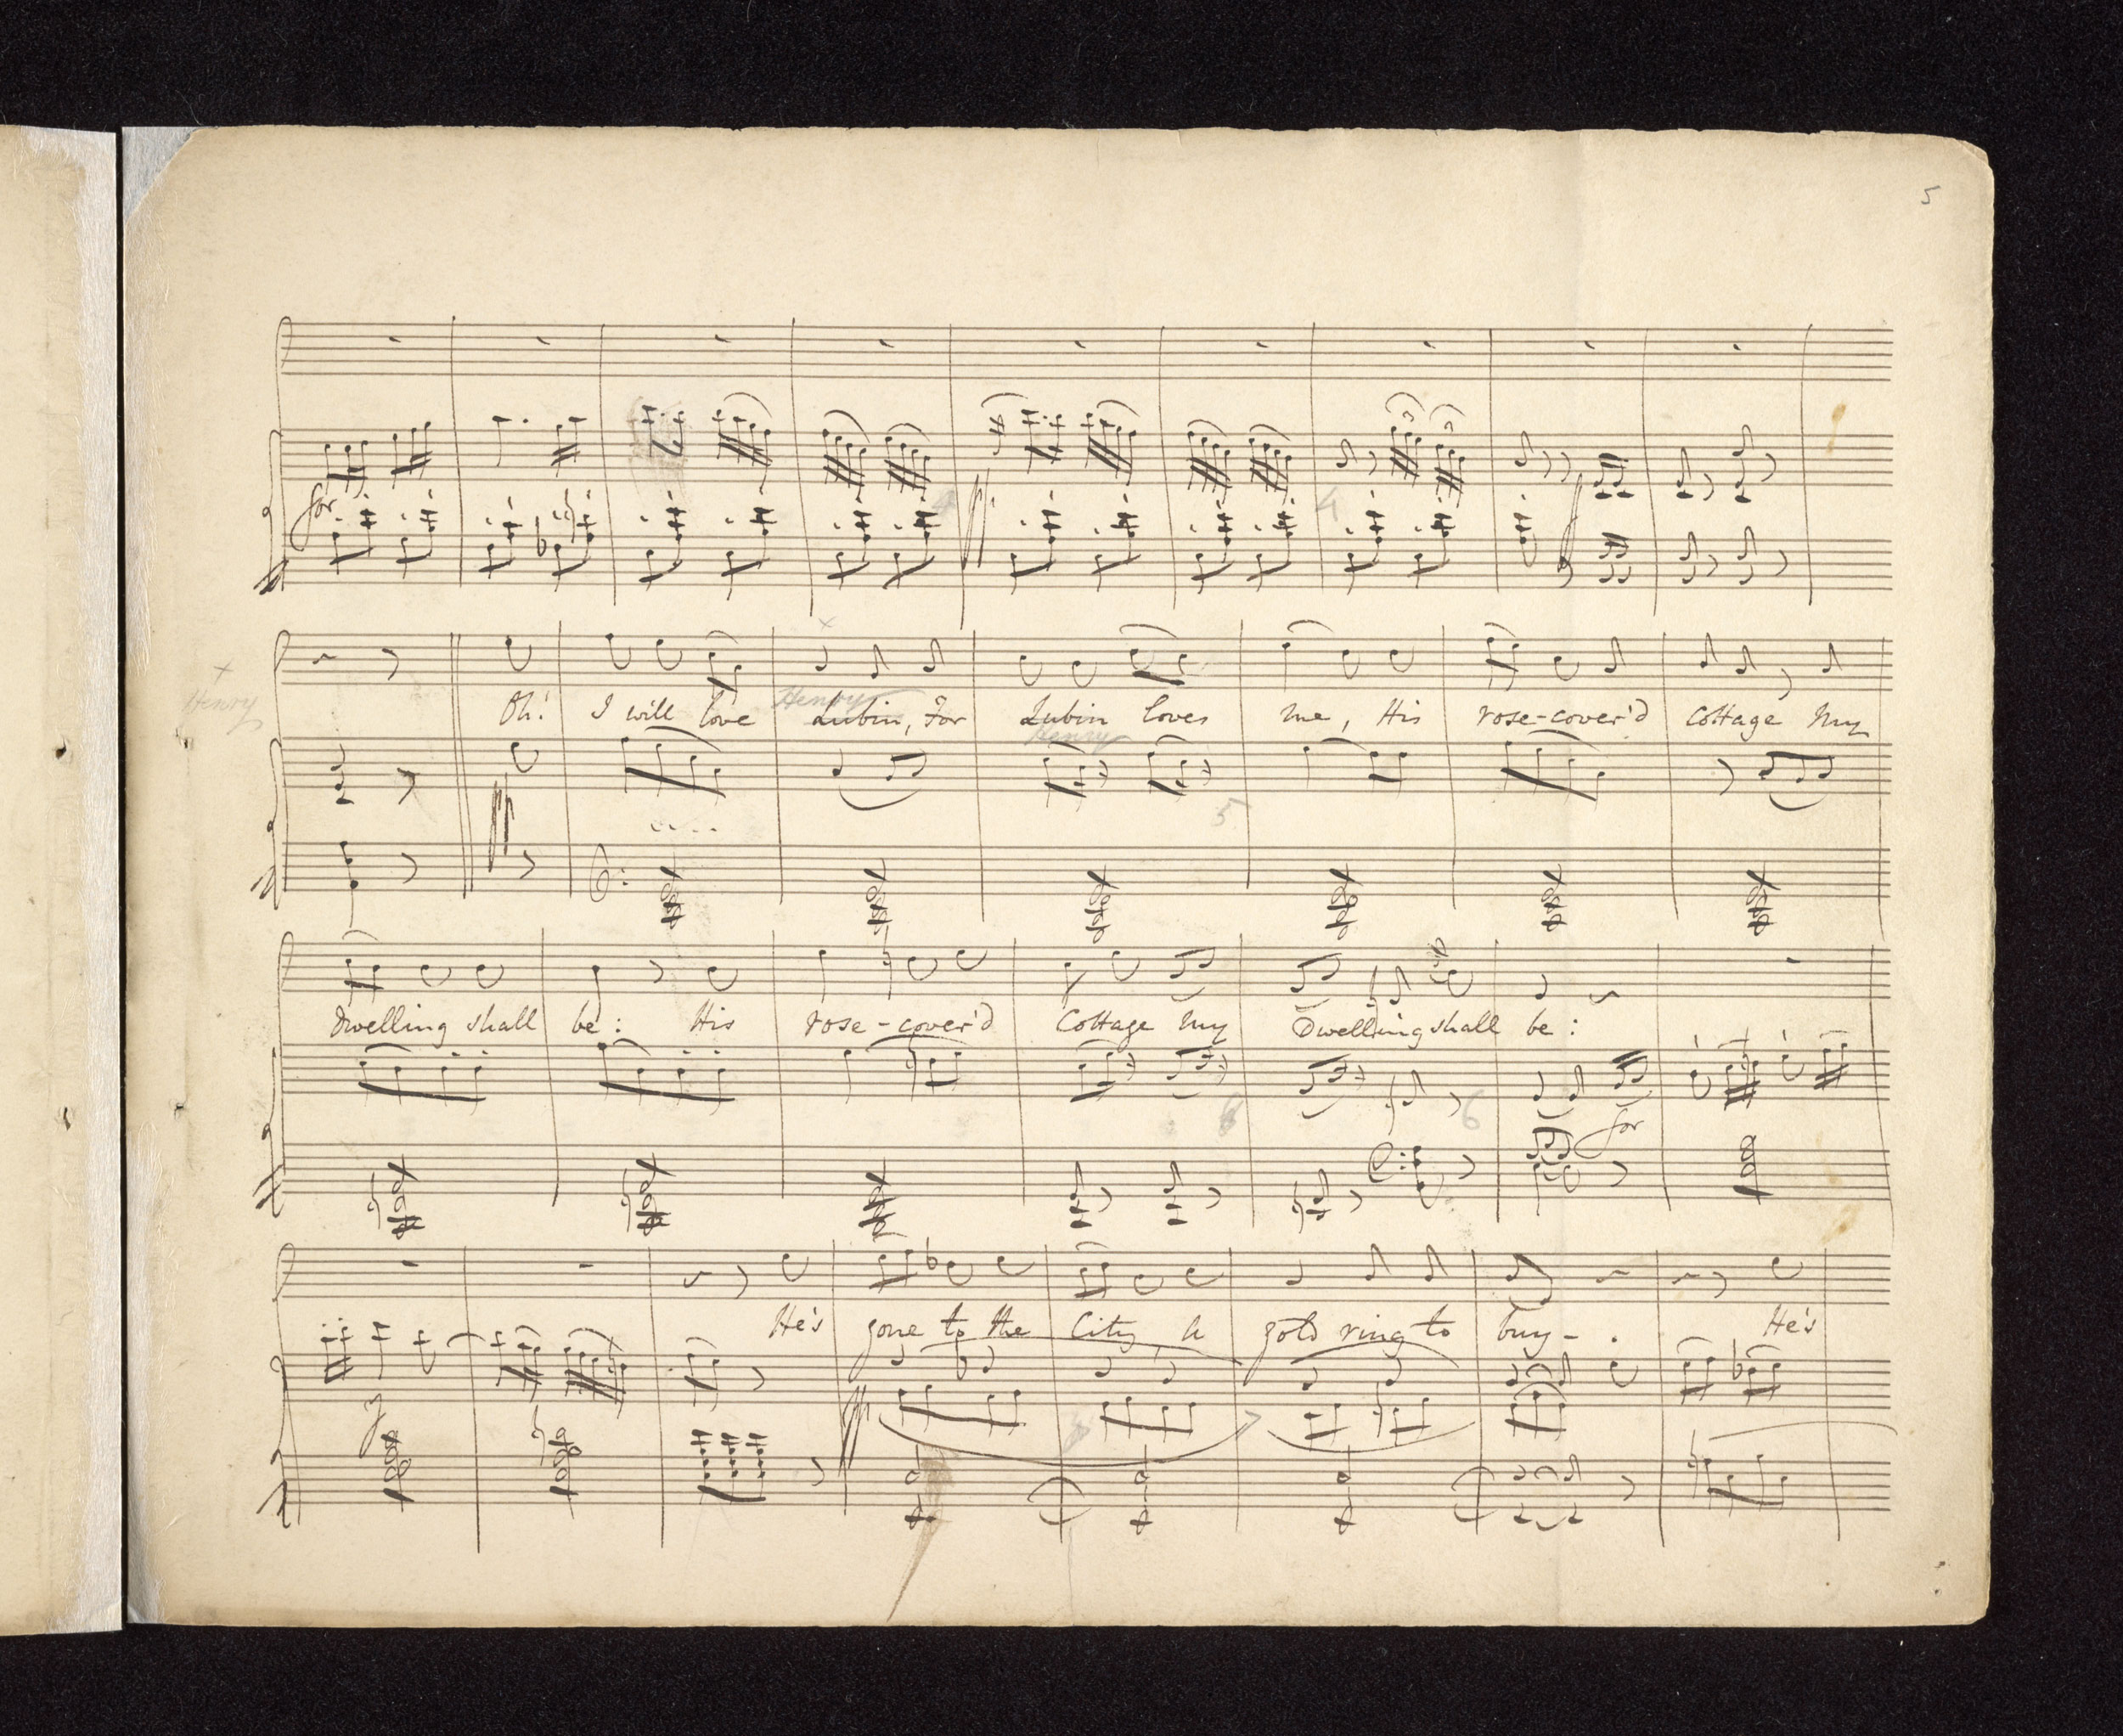 5
for
4
pp
4
3 3
f
x
x
Henry
Henry
Oh! I will love Lubin, For Lubin loves me, His rose-cover'd Cottage My
Henry
pp
5
Dwelling shall be: His rose-cover'd Cottage My Dwelling shall be:
6 6
for
He's gone to the City a gold ring to buy-. He's
f
pp